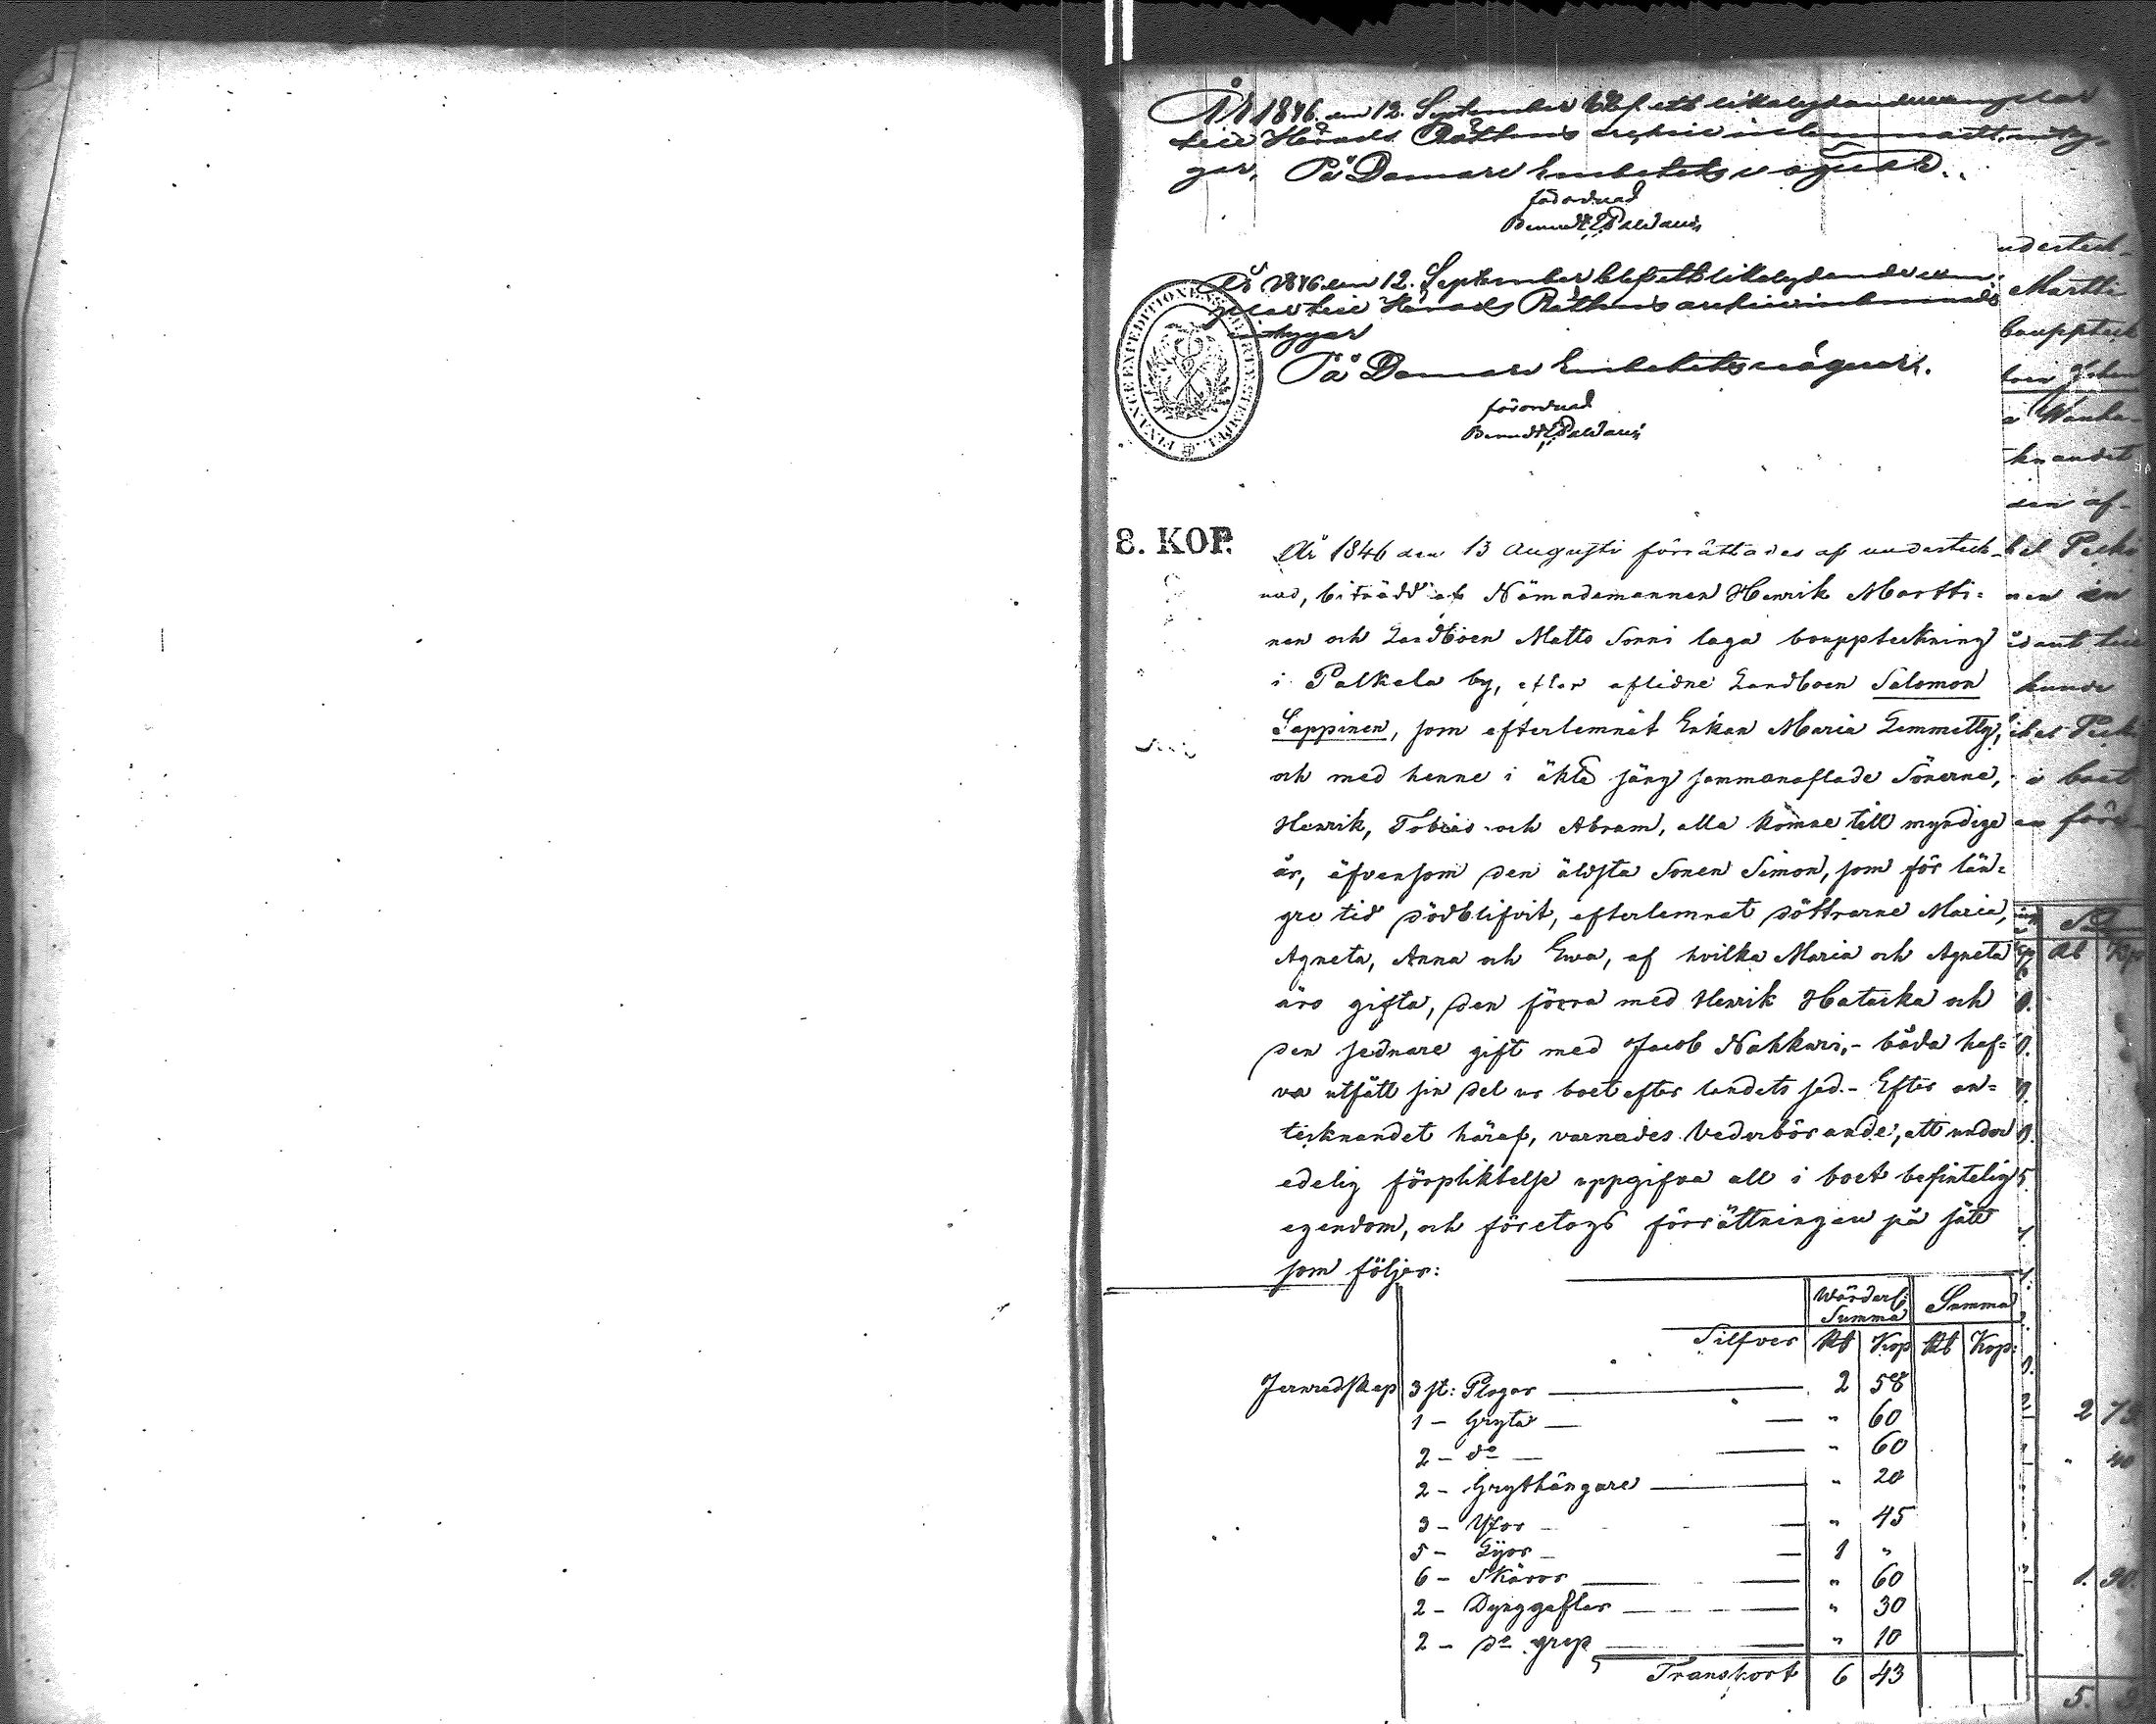 År 1846 den 12. September blef ett likalydande exemplar
till Härads Rättens archiv inlemnadt, intygar,
På Domare Embetets vägnar.
förordnad
År 1846 den 12. September blef ett likalydande exemplar
till Härads Rättens archiv inlemnadt
intygar
På Domare Embetets vägnar.
förordnad
FINANCE EXPEDITIONENS CHARTE STEMPEL
8. KOP.
År 1846 den 13 Augusti förrättades af underteck-
nad, biträdd af Nämndemannen Henrik Martti-
nen och Landboen Matts Sonni laga bouppteckning
i Palkela by, efter aflidne Landboen Salomon
Seppinen, som efterlemnat Enkan Maria Lemmetty,
och med henne i äkta säng sammanaflade Sönerne,
Henrik, Tobias och Abram, alla komne till myndige
år, äfvensom den äldsta Sonen Simon, som för län-
gre tid dödblifvit, efterlemnat döttrarne Maria,
Agneta, Anna och Ewa, af hvilka Maria och Agneta
äro gifta, den förra med Henrik Hatakka och
den sednare gift med Jacob Nahkuri,- båda haf-
va utfått sin del ur boet efter landets sed.- Efter an-
tecknandet häraf, varnades Vederbörande, att under
edelig förpliktelse uppgifva all i boet befintelig
egendom, och företogs förrättningen på sätt
som följer:
Wärder: Summa Summa
Silfver Rb Kop Rb Kop:
Jernredskap 3 st: Plogar 2 58
1 - Gryta - " 60
2 - do - " 60
2 - Grythängare " 20
3 - Yxor - " 45
5 - Lijor - 1 "
6 - Skäror " 60
2 - Dynggaflar " 30
2 - do grep " 10
Transport 6 43
undertech-
Martti
bouppteck
a Wanha-
knandet
den af-
nen en
kunde
i boet
Rb Kop
2
40
1. 90.
5.